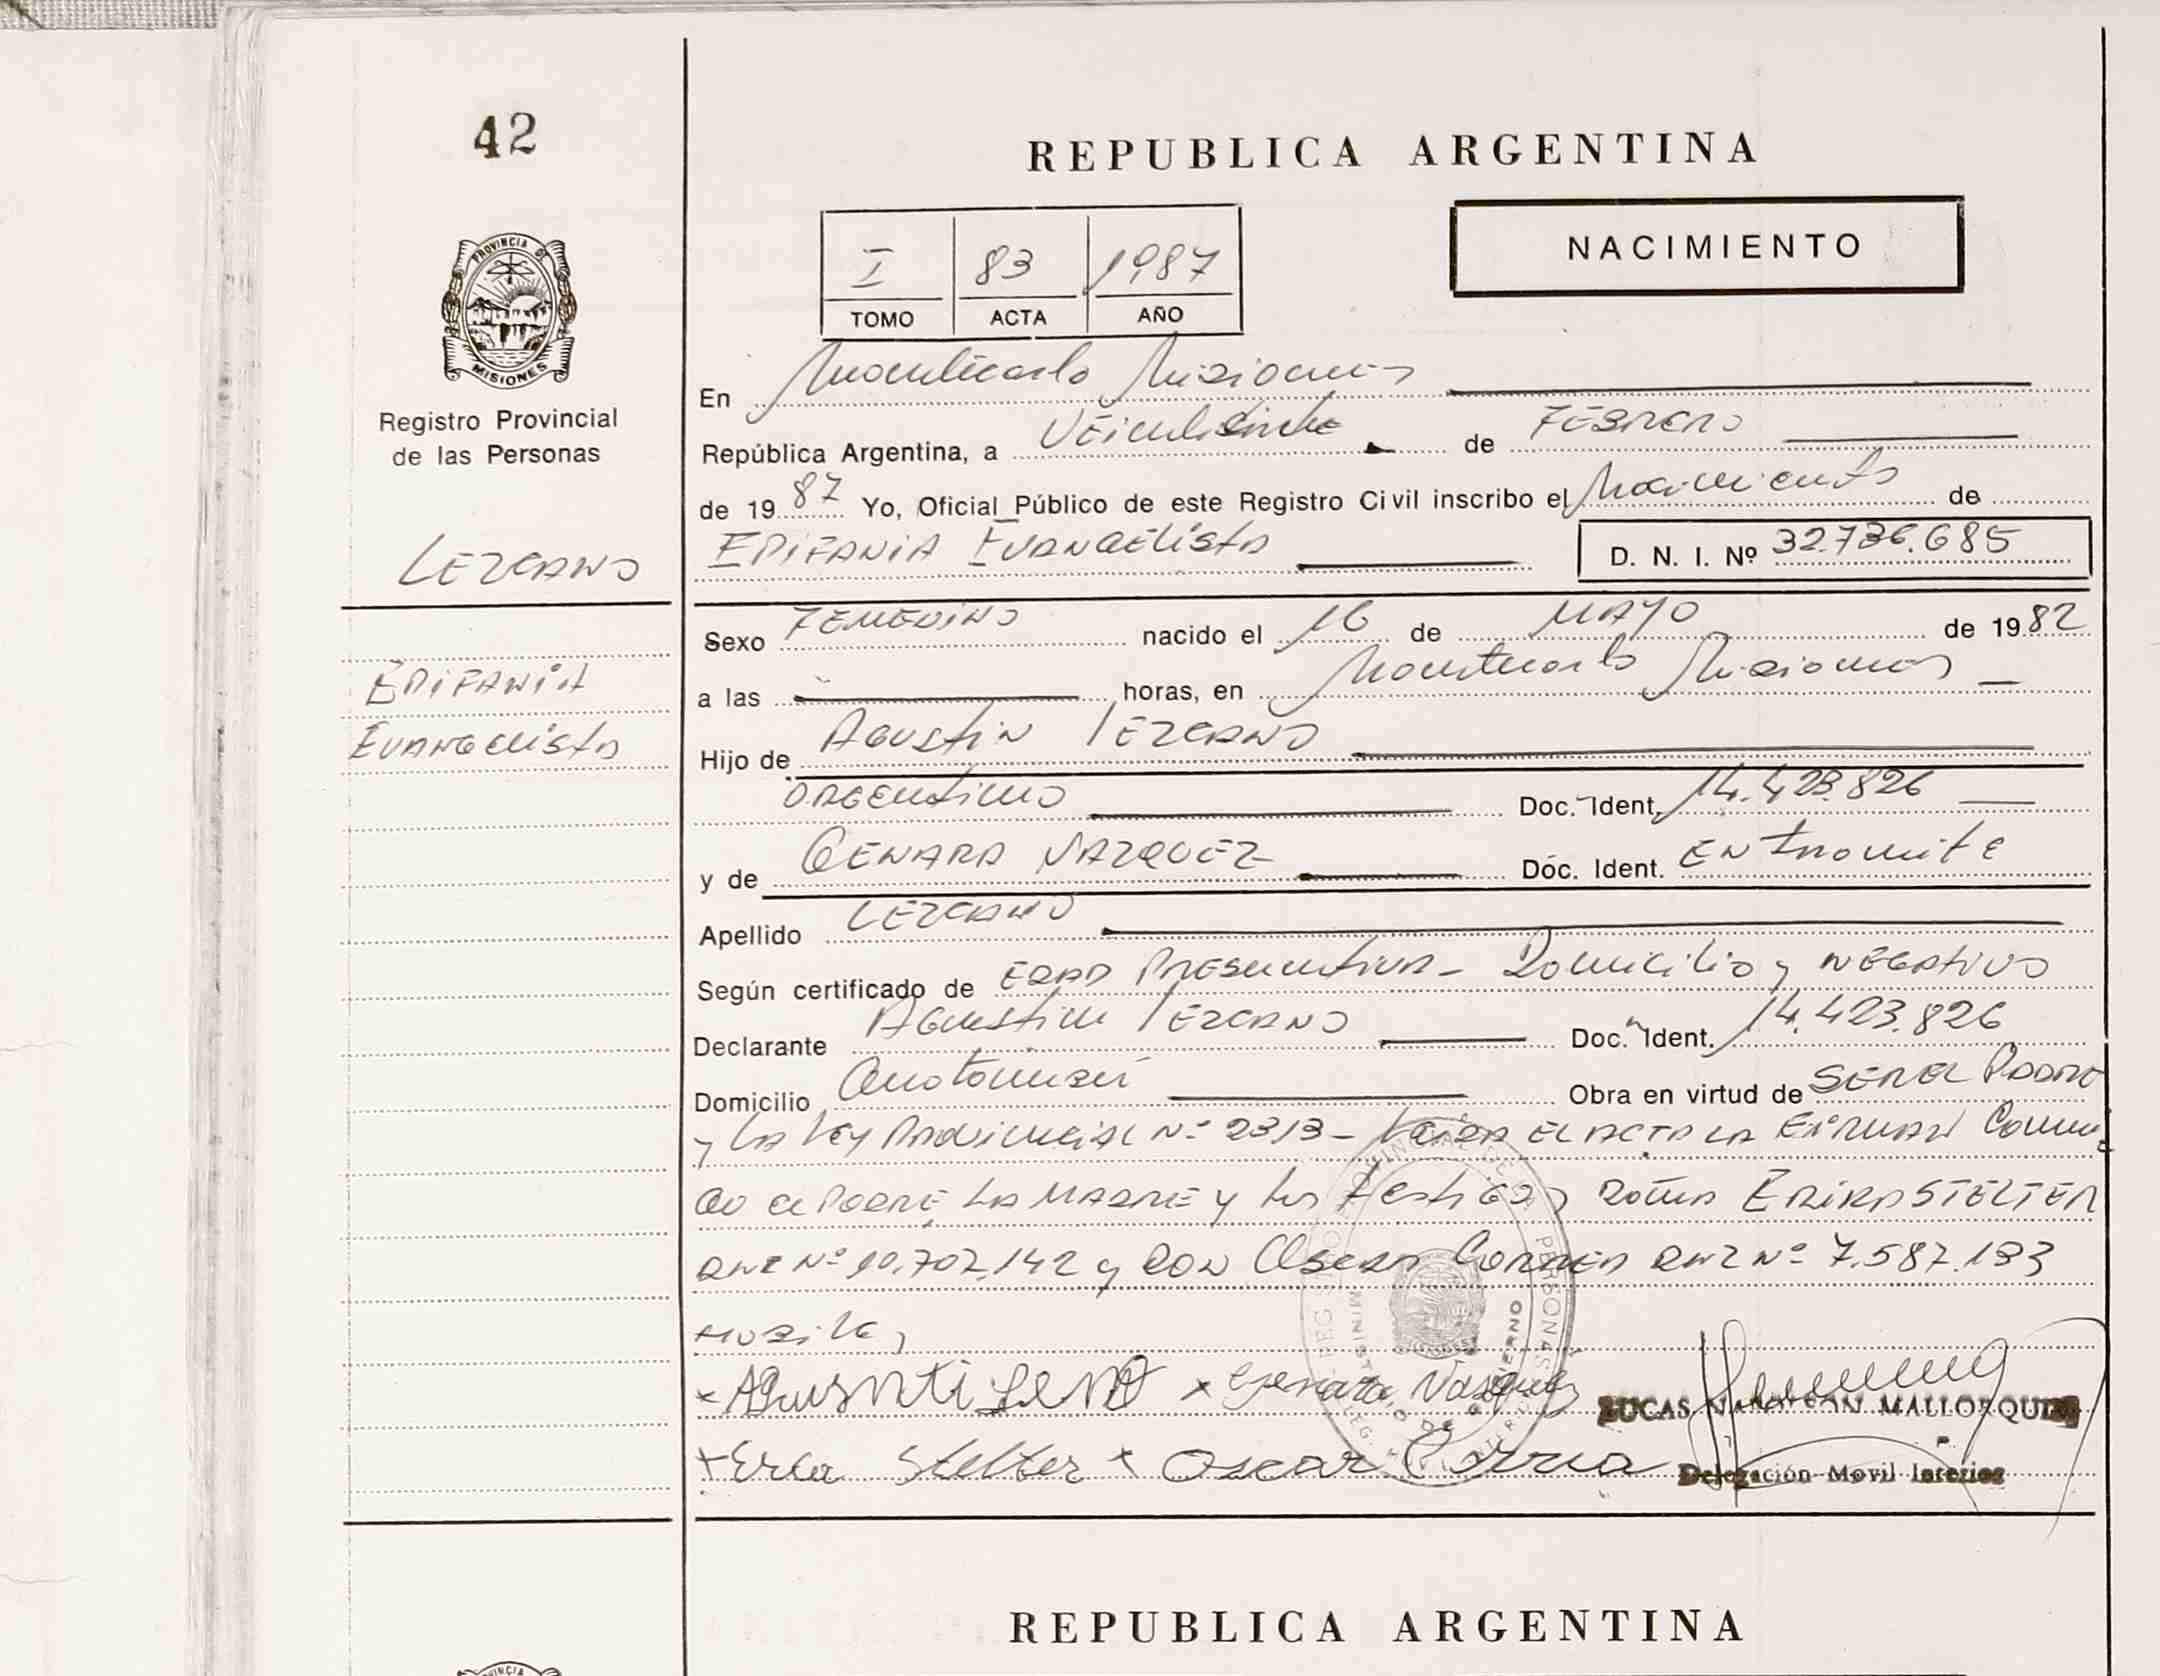 42
REPUBLICA ARGENTINA
I 83 1987
TOMO ACTA AÑO
NACIMIENTO
PROVINCIA DE MISIONES
Registro Provincial
de las Personas
LEZCANO
EPIFANIA
EVANGELISTA
En Montecarlo Misiones
República Argentina, a Veintisiete de FEBRERO
de 1987 Yo, Oficial Público de este Registro Civil inscribo el Nacimiento de
EPIFANIA EVANGELISTA D. N. I. Nº 32.736.685
Sexo FEMENINO nacido el 16 de MAYO de 1982
a las horas, en Montecarlo Misiones
Hijo de AGUSTIN LEZCANO
ARGENTINO Doc. Ident. 14.423.826
y de GENARA VAZQUEZ Doc. Ident. EN TRAMITE
Apellido LEZCANO
Según certificado de EDAD PRESUNTIVA - Domicilio y NEGATIVO
Declarante AGUSTIN LEZCANO Doc. Ident. 14.423.826
Domicilio Obra en virtud de SER EL PADRE
y LA LEY PROVINCIAL Nº 2313 - LEIDA EL ACTA LA FIRMAN
EL PADRE LA MADRE y los Testigos DOÑA ERIKA STELTER
DNI Nº 10.702.142 y DON OSCAR CORREA DNI Nº 7.587.193
Genara Vasquez
LUCAS NAPOLEON MALLORQUIN
Stelter x Oscar Correa
Delegación Movil Interior
REPUBLICA ARGENTINA